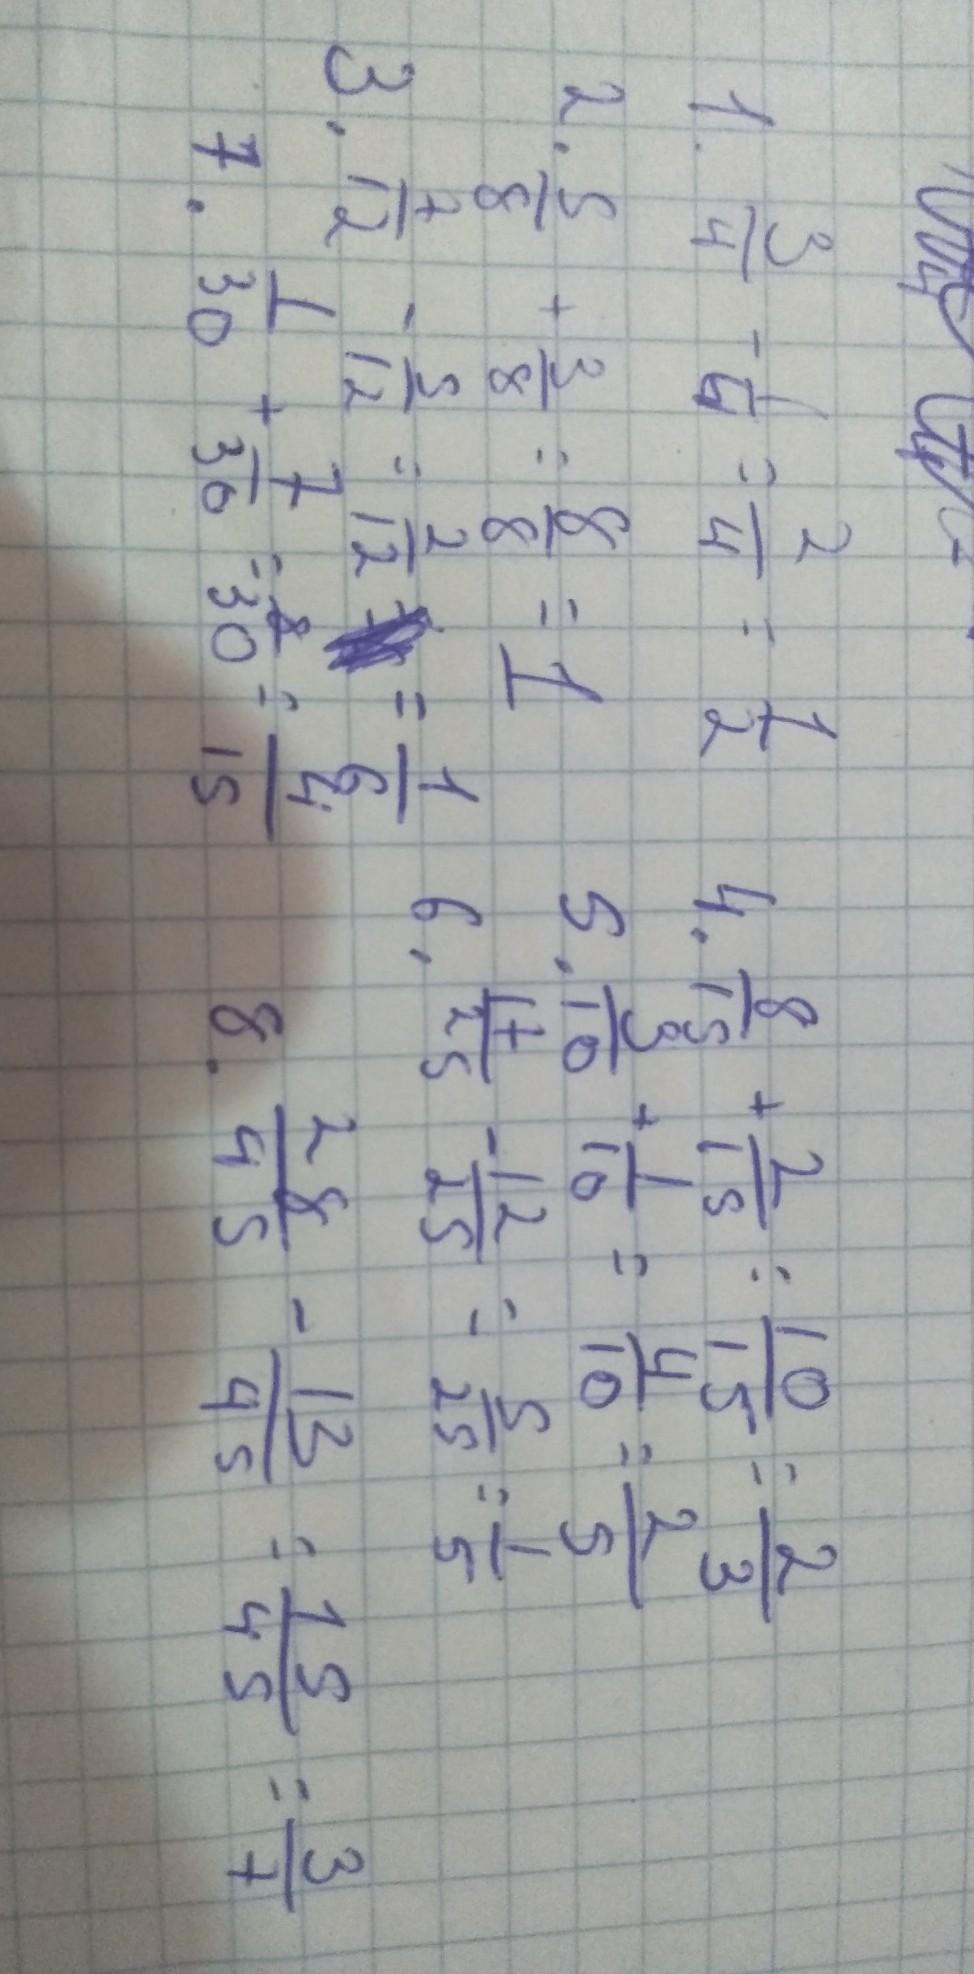 1. 3/4 - 1/4 = 2/4 = 1/2
2. 5/8 + 3/8 = 8/8 = 1
3. 7/12 - 5/12 = 2/12 = 1/6
7. 1/30 + 7/30 = 8/30 = 4/15
4. 8/15 + 2/15 = 10/15 = 2/3
5. 3/10 + 1/10 = 4/10 = 2/5
6. 17/25 - 12/25 = 5/25 = 1/5
8. 28/45 - 13/45 = 15/45 = 3/7